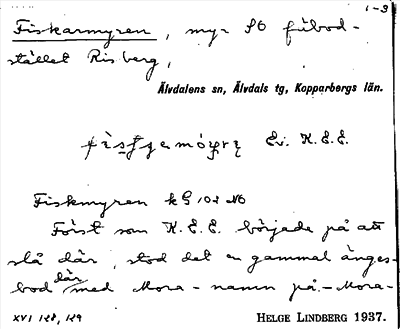 1-3
Fiskarmyren, myr SO fäbod-
stället Risberg,
Älvdalens sn, Älvdals tg, Kopparbergs län.
Ev. K.E.E.
Fiskmyren kG 102 NO
Först som K.E.E. började på att
slå där, stod det en gammal änges-
bod där med Mora-namn på. - Mora-
XVI 128, 129
HELGE LINDBERG 1937.